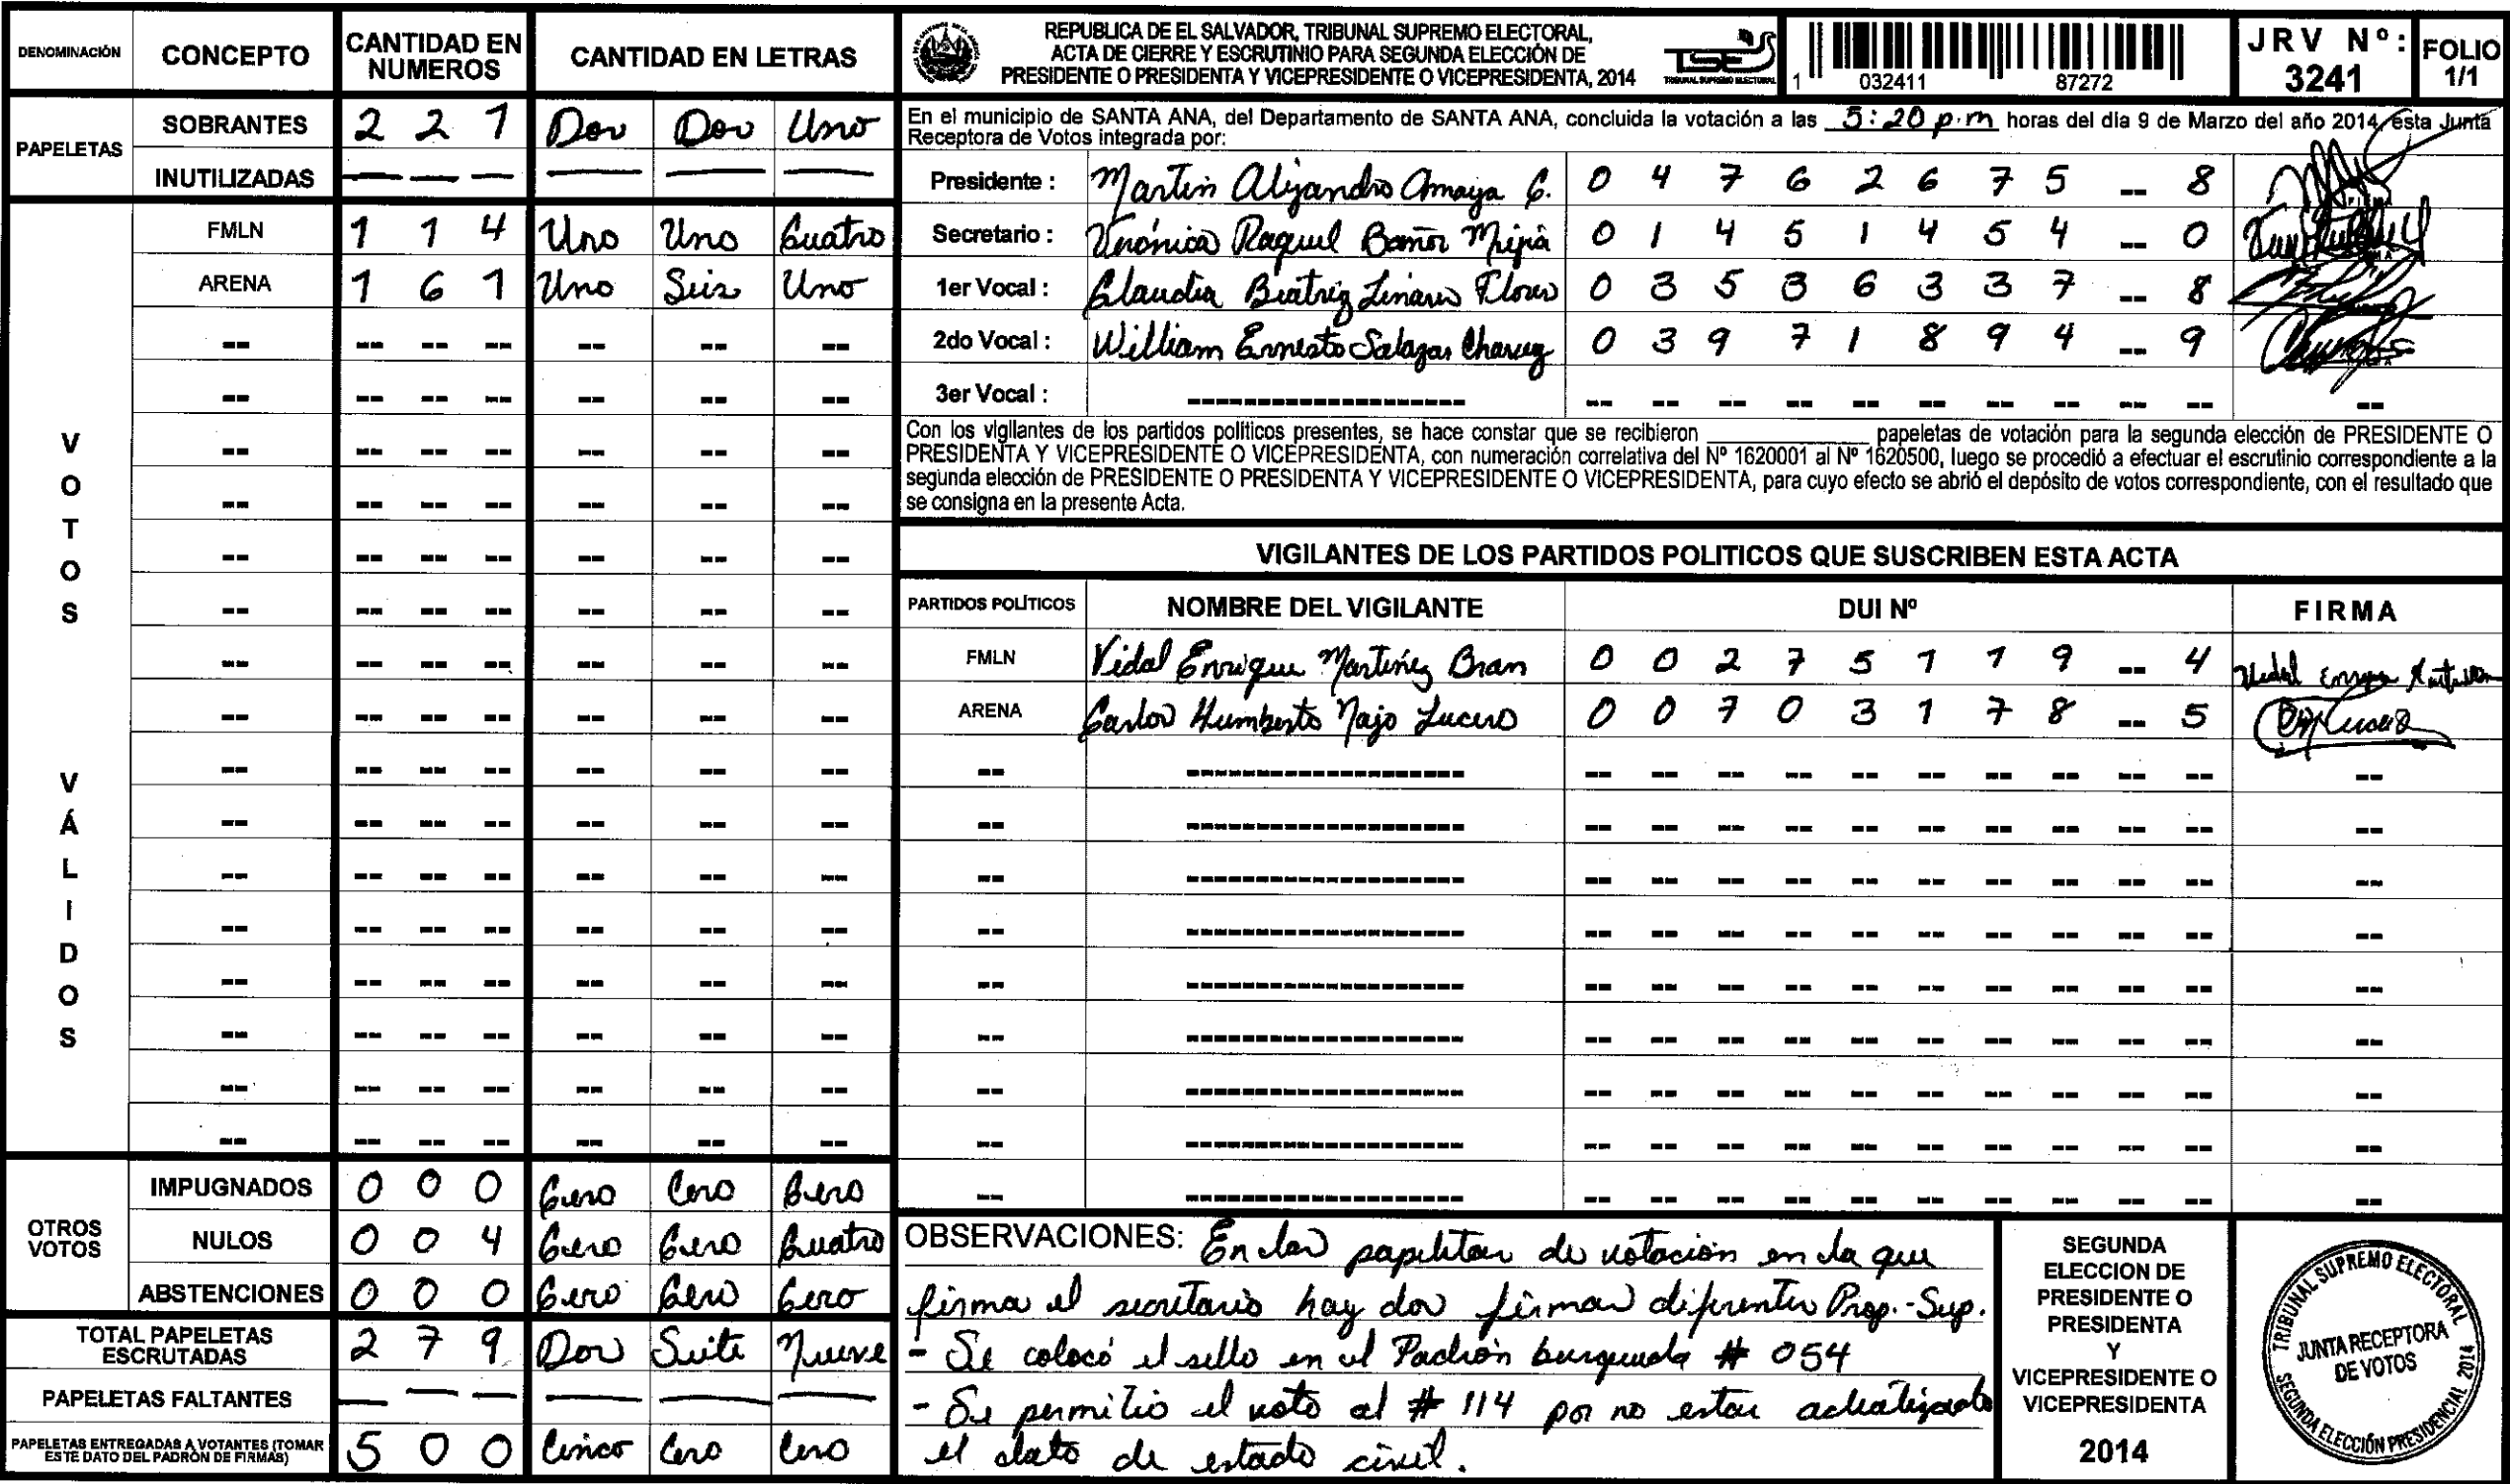 DENOMINACIÓN CONCEPTO CANTIDAD EN NUMEROS CANTIDAD EN LETRAS
PAPELETAS
SOBRANTES 2 2 1 Dos Dos Uno
INUTILIZADAS — — — — — —
VOTOS VÁLIDOS
FMLN 1 1 4 Uno Uno Cuatro
ARENA 1 6 1 Uno Seis Uno
OTROS VOTOS
IMPUGNADOS 0 0 0 Cero Cero Cero
NULOS 0 0 4 Cero Cero Cuatro
ABSTENCIONES 0 0 0 Cero Cero Cero
TOTAL PAPELETAS ESCRUTADAS 2 7 9 Dos Siete Nueve
PAPELETAS FALTANTES — — — — — —
PAPELETAS ENTREGADAS A VOTANTES (TOMAR ESTE DATO DEL PADRÓN DE FIRMAS) 5 0 0 Cinco Cero Cero
REPUBLICA DE EL SALVADOR, TRIBUNAL SUPREMO ELECTORAL,
ACTA DE CIERRE Y ESCRUTINIO PARA SEGUNDA ELECCIÓN DE
PRESIDENTE O PRESIDENTA Y VICEPRESIDENTE O VICEPRESIDENTA, 2014
TSE
TRIBUNAL SUPREMO ELECTORAL
1 032411 87272
JRV Nº: 3241
FOLIO 1/1
En el municipio de SANTA ANA, del Departamento de SANTA ANA, concluida la votación a las 5:20 p.m horas del día 9 de Marzo del año 2014, esta Junta
Receptora de Votos integrada por:
Presidente : Martin Alejandro Amaya G. 0 4 7 6 2 6 7 5 -- 8
Secretario : Verónica Raquel Baños Mejía 0 1 4 5 1 4 5 4 -- 0
1er Vocal : Claudia Beatriz Linares Flores 0 3 5 3 6 3 3 7 -- 8
2do Vocal : William Ernesto Salazar Chavez 0 3 9 7 1 8 9 4 -- 9
3er Vocal :
Con los vigilantes de los partidos políticos presentes, se hace constar que se recibieron ______ papeletas de votación para la segunda elección de PRESIDENTE O
PRESIDENTA Y VICEPRESIDENTE O VICEPRESIDENTA, con numeración correlativa del Nº 1620001 al Nº 1620500, luego se procedió a efectuar el escrutinio correspondiente a la
segunda elección de PRESIDENTE O PRESIDENTA Y VICEPRESIDENTE O VICEPRESIDENTA, para cuyo efecto se abrió el depósito de votos correspondiente, con el resultado que
se consigna en la presente Acta.
VIGILANTES DE LOS PARTIDOS POLITICOS QUE SUSCRIBEN ESTA ACTA
PARTIDOS POLÍTICOS NOMBRE DEL VIGILANTE DUI Nº FIRMA
FMLN Vidal Enrique Martinez Bran 0 0 2 7 5 1 1 9 -- 4
ARENA Carlos Humberto Najo Lucero 0 0 7 0 3 1 7 8 -- 5
OBSERVACIONES: En las papeletas de votación en la que
firma el secretario hay dos firmas diferentes Prop.-Sup.
- Se colocó el sello en el Padrón busqueda # 054
- Se permitio el voto al # 114 por no estar actualizado
el dato de estado civil.
SEGUNDA
ELECCION DE
PRESIDENTE O
PRESIDENTA
Y
VICEPRESIDENTE O
VICEPRESIDENTA
2014
TRIBUNAL SUPREMO ELECTORAL
JUNTA RECEPTORA
DE VOTOS
SEGUNDA ELECCIÓN PRESIDENCIAL 2014